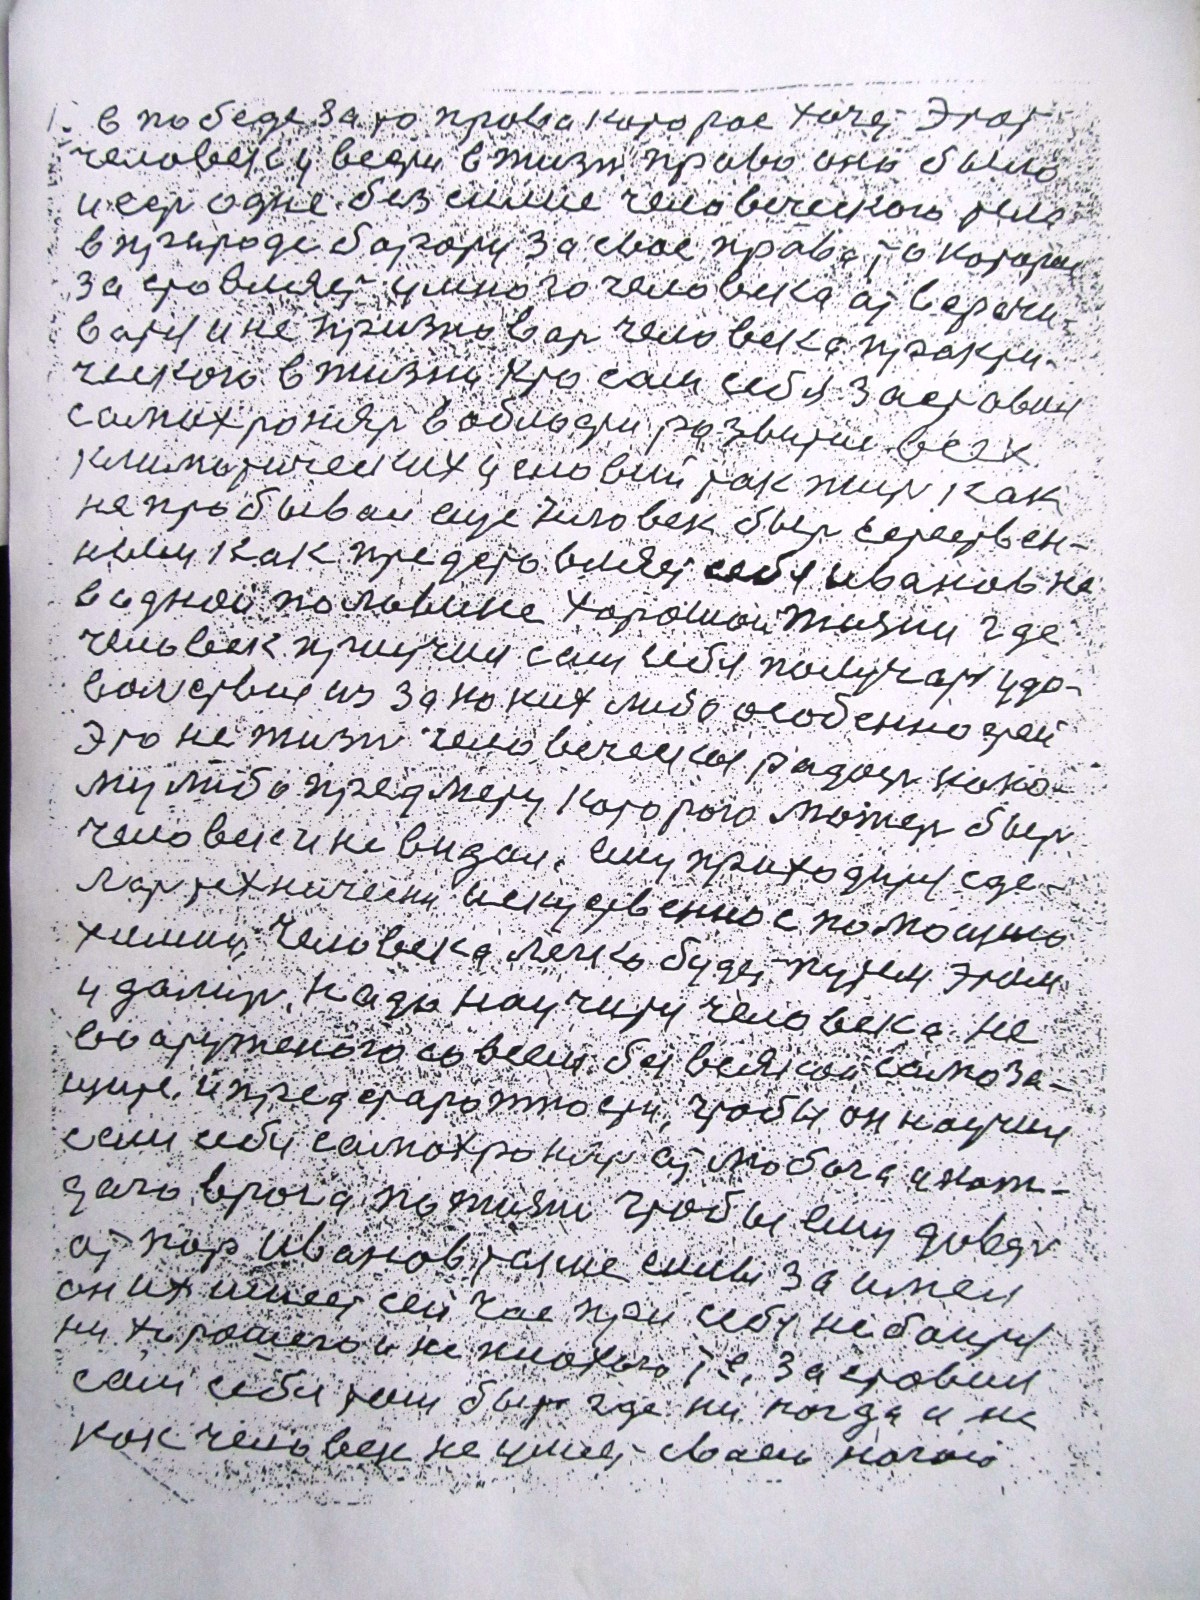 в победе за то права которое хочет Этот
человек увести в жизнь право оно было
и есть одне безсилие человеческого тела
в природе борготи за свое права то которое
заставляет умного человека отворачи-
вати и не признавать человека практи-
ческого в жизни Кто сам себя заставил
самохронять в области развитие всех
климатических условий так жить как
не пробывал еще человек быть естествен-
ным как представляет себя иванов не
в одной половине хорошои жизни где
человек приучил сам себя получать удо-
волствие из за каких либо особенностей
Это не жизнь человеческая радость како-
му либо предмету которого может быть
человек и не видал. ему приходится сде-
лать технически искуственно с помощью
химии, Человека легко будет путем этим
удалить. Надо научити человека не
вооруженого совсем без всякой самоза-
щите. и предсторожности, чтобы он научил
сам себя самохронять от любога и каж-
дого врога по жизни чтобы ему довдг
от пор Иванов такие силы заимел
он их имеет сей час при себя не боится
ни хорошего и не плохого т е, заставил
сам себя там быть где ни когда и не
как человек не умеет сваею ногою